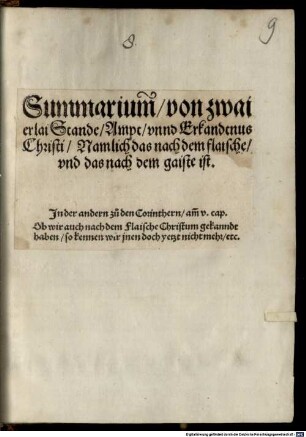 8.
9
Summarium̃/ von zwai
erlai Stande/ Ampt/ vnnd Erkandtnus
Christi/ Namlich das nach dem flaische/
vnd das nach dem gaiste ist.
In der andern zů den Corinthern/ am̃ v. cap.
Ob wir auch nach dem Flaische Christum gekanndt
haben/ so kennen wir jnen doch yetzt nicht mehr/ etc.